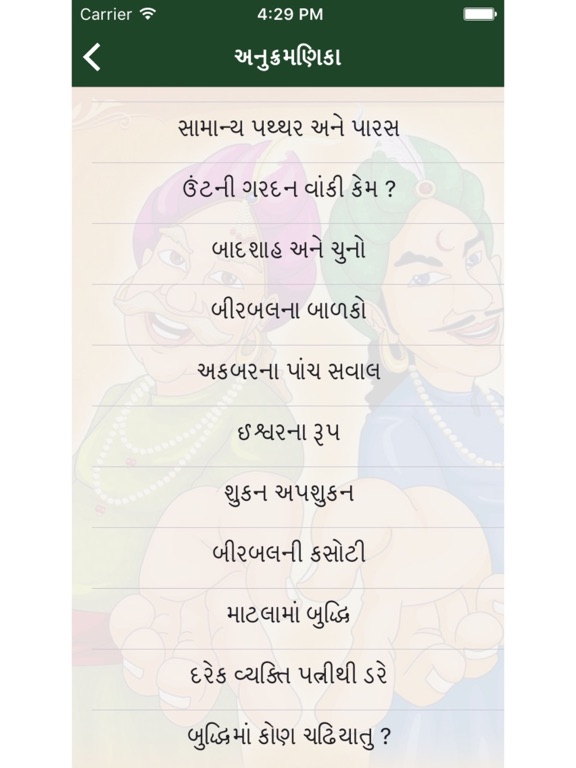 Carrier 4:29 PM
અનુક્રમણિકા
સામાન્ય પથ્થર અને પારસ
ઉંટની ગરદન વાંકી કેમ ?
બાદશાહ અને ચુનો
બીરબલના બાળકો
અકબરના પાંચ સવાલ
ઈશ્વરના રૂપ
શુકન અપશુકન
બીરબલની કસોટી
માટલામાં બુદ્ધિ
દરેક વ્યક્તિ પત્નીથી ડરે
બુદ્ધિમાં કોણ ચઢિયાતુ ?